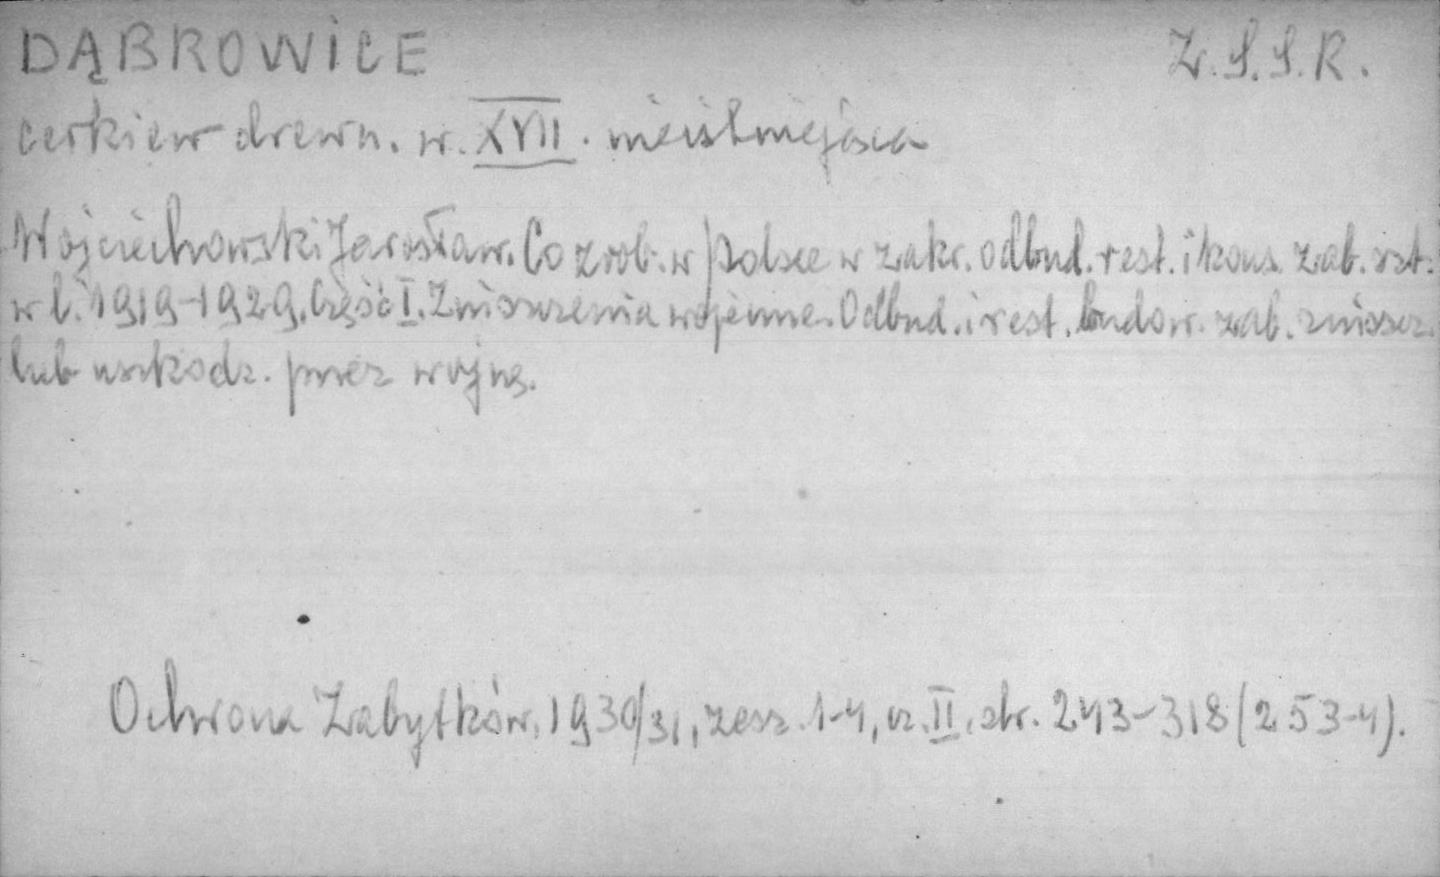 DĄBROWICE Z.S.S.R.
cerkiew drewn. w. XVII. nieistniejąca
Wojciechowski Jarosław. Co zrob. w Polsce w zakr. odbud. rest. i kons. zab. szt.
w l. 1919-1929. Część I. Zniszczenia wojenne. Odbud. i rest. budow. zab. zniszcz.
lub uszkodz. przez wojnę.
Ochrona Zabytków, 1930/31, zesz. 1-4, cz. II, str. 243-318 (253-4).